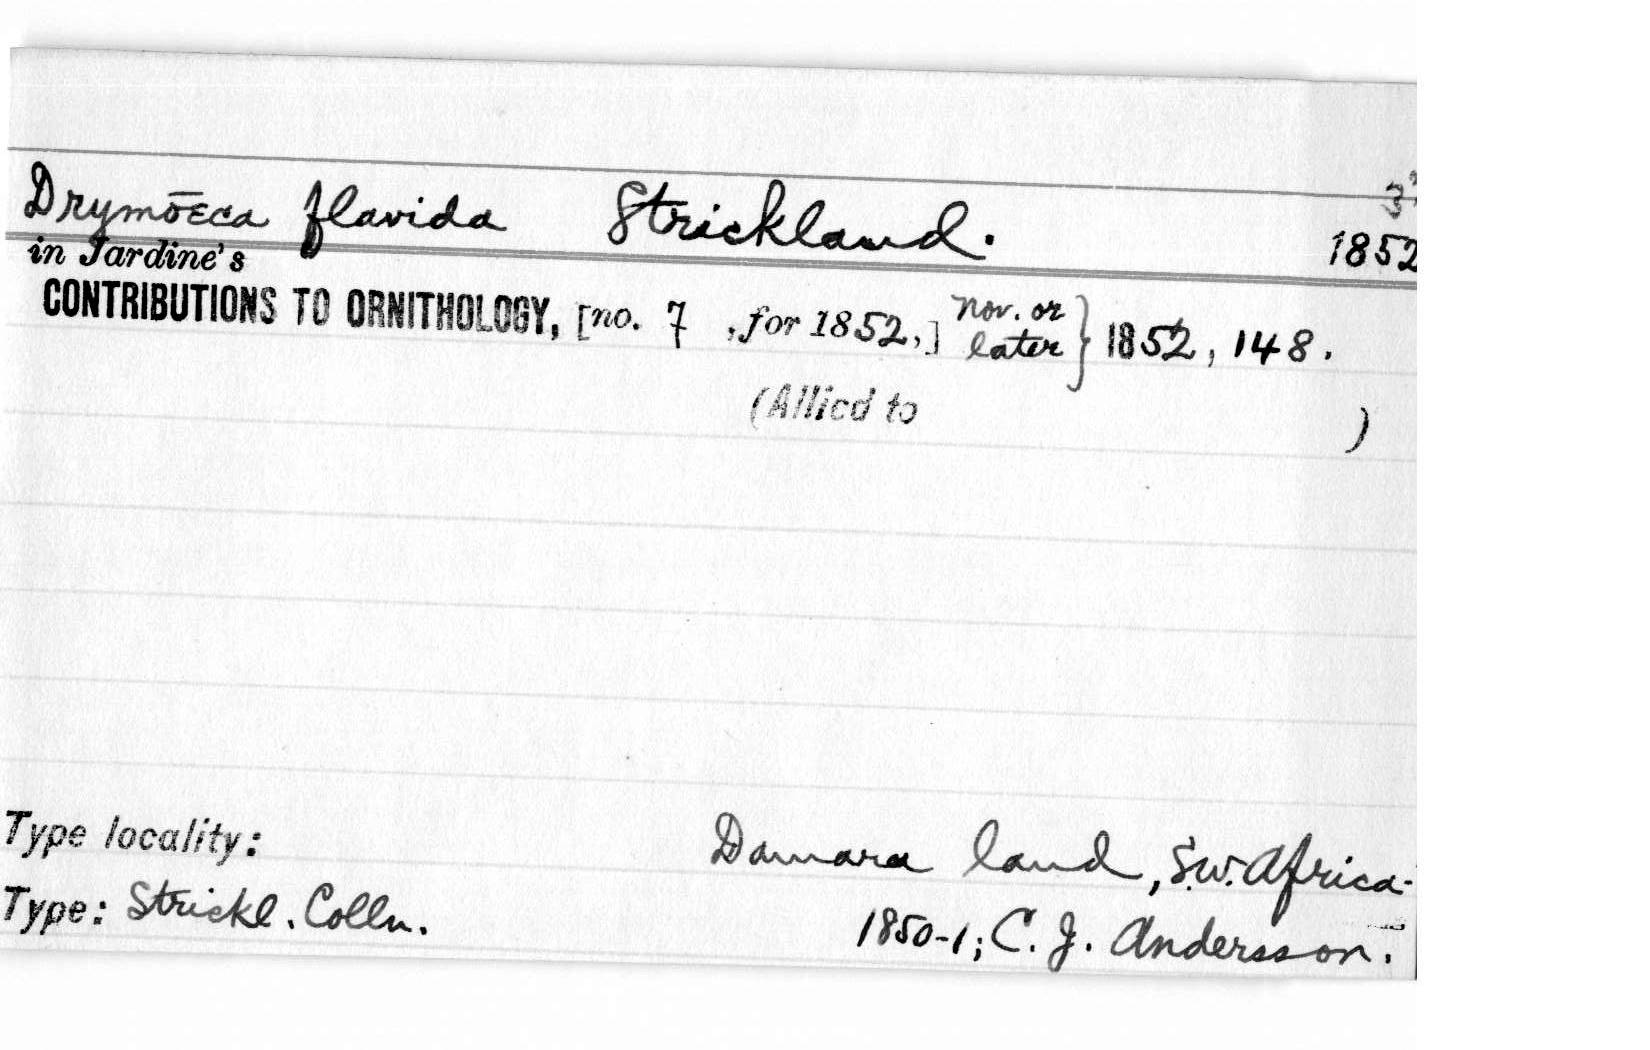 3
Drymœca flavida Strickland. 1852
in Jardine's
CONTRIBUTIONS TO ORNITHOLOGY, [no. 7 , for 1852,] Nov. or later } 1852, 148.
(Allied to )
Type locality: Damara land, S.W. Africa.
Type: Strickl. Colln. 1850-1; C. J. Andersson.